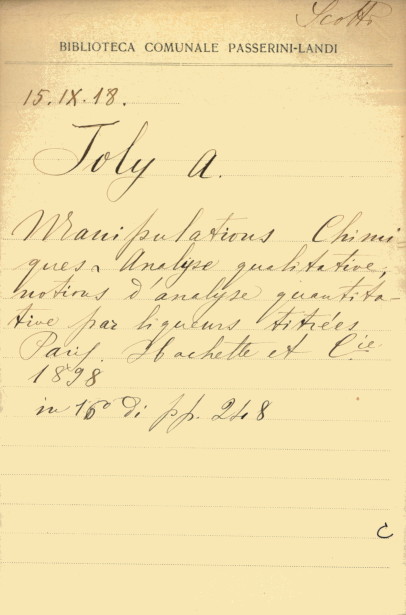 Scotti
BIBLIOTECA COMUNALE PASSERINI-LANDI
15.IX.18.
Joly A.
Manipulations Chimi-
ques. Analyse qualitative,
notions d'analyse quantita-
tive par liqueurs titrées
Paris. Hachette et Cie
1898
in 16º di pp. 248
C